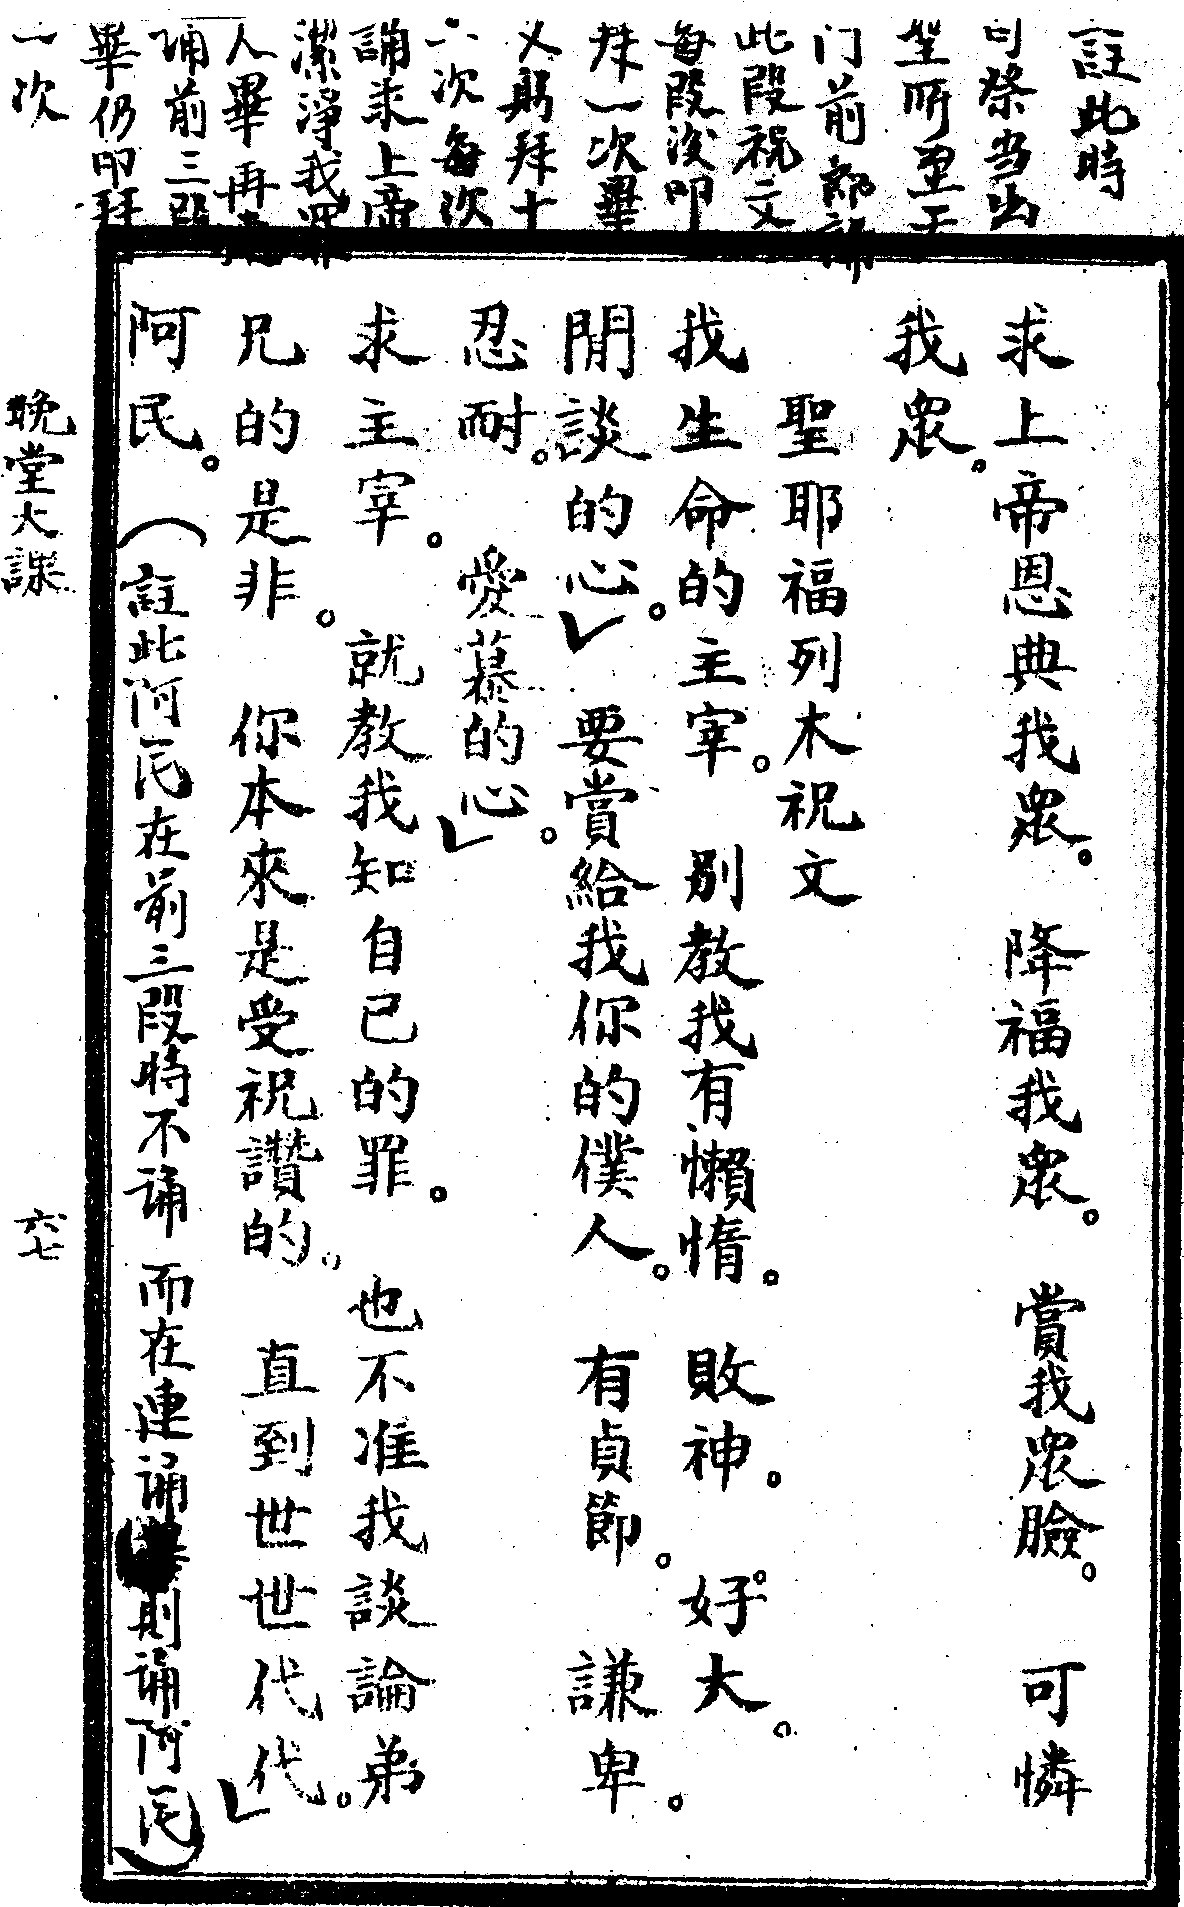 註此時
司祭当出
聖所至王
门前部誦
此段祝文
每段後叩
拜一次畢
又躬拜十
六次每次
誦求上帝
潔淨我罪
人畢再
誦前三段
畢仍叩拜
一次
求上帝恩典我眾。降福我眾。賞我眾臉。可憐
我眾。
聖耶福列木祝文
我生命的主宰。別教我有懶惰。敗神。好大。
閒談的心。要賞給我你的僕人。有貞節。謙卑。
忍耐。愛慕的心。
求主宰。就教我知自己的罪。也不准我談論弟
兄的是非。你本來是受祝讚的。直到世世代代。
阿民。(註此阿民在前三段時不诵 而在連诵 則诵阿民)
晚堂大課
六七